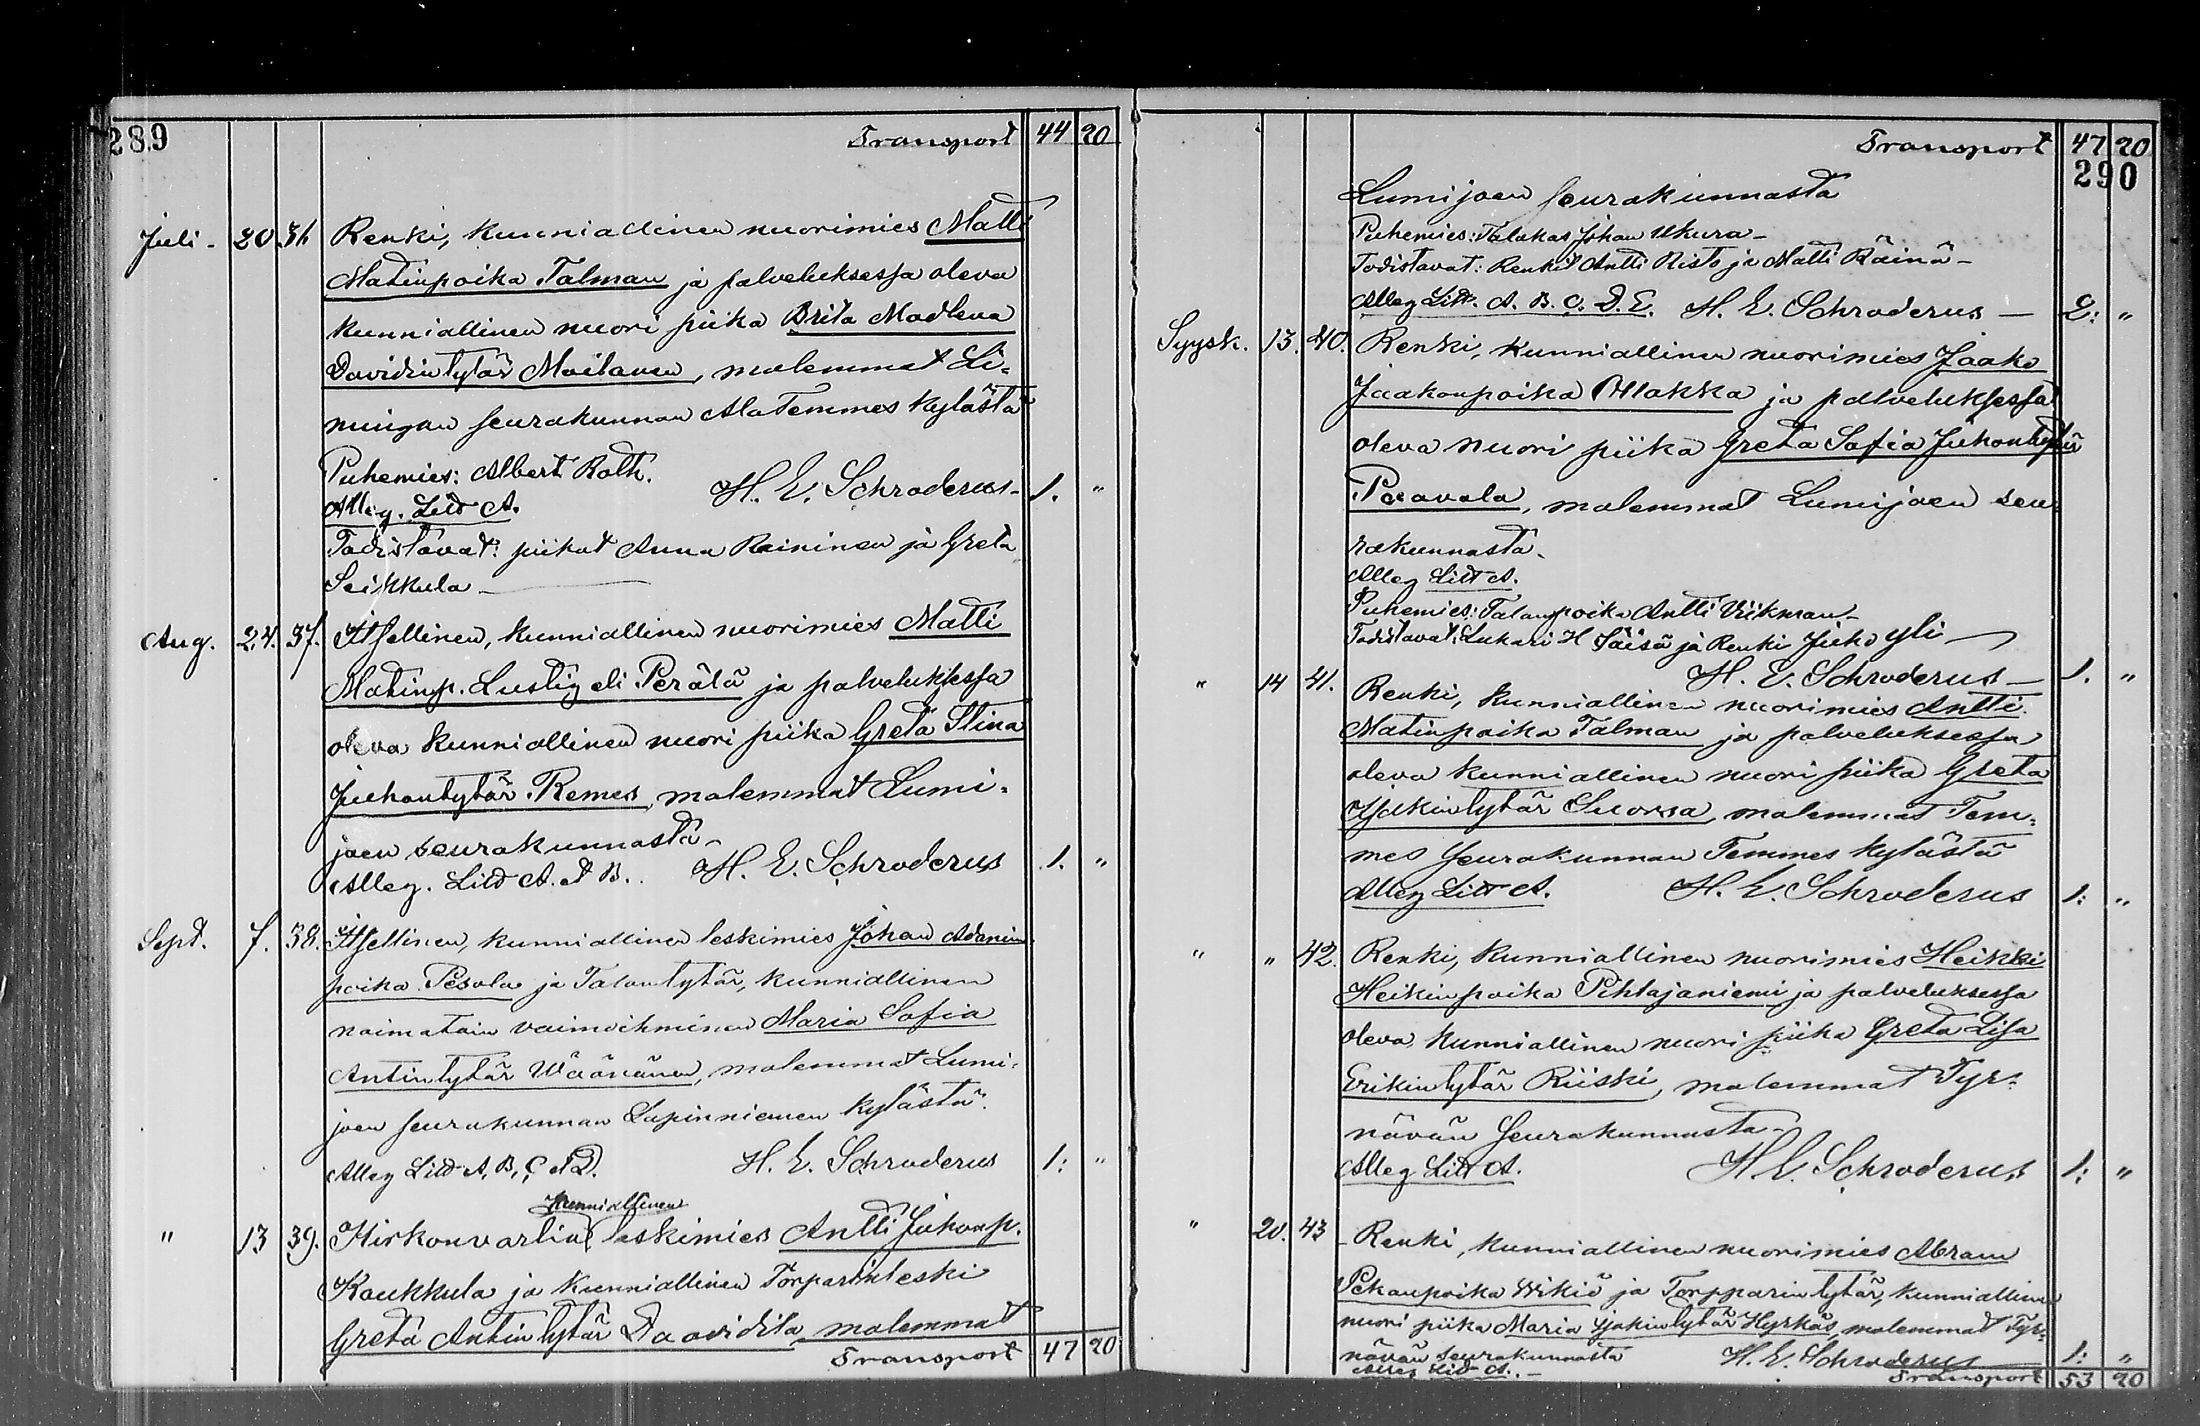 289
Transport 44 20
Juli - 20. 36 Renki, kunniallinen nuorimies Matti
Matinpoika Talman ja palveluksessa oleva
kunniallinen nuori piika Brita Madlena
Davidintytär Moilanen, molemmat Li-
mingan seurakunnan Ala Temmes kylästä
Puhemies: Albert Roth.
Alleg. Litt A. H. E. Schroderus - 1. "
Todistavat: piikat Anna Raininen ja Greta
Seikkula -
Aug. 24. 37. Itsellinen, kunniallinen nuorimies Matti
Matinp. Lustig eli Perälä ja palveluksessa
oleva kunniallinen nuori piika Greta Stina
Juhontytär Remes, molemmat Lumi-
joen seurakunnasta -
Alleg. Litt A. & B. H. E. Schroderus 1. "
Sept. 7. 38. Itsellinen, kunniallinen leskimies Johan Adamin
poika Pesola ja Talontytär, kunniallinen
naimatoin vaimoihminen Maria Sofia
Antintytär Wäänänen, molemmat Lumi-
joen seurakunnan Lapinniemen kylästä.
Alleg Litt A, B, C & D. H. E. Schroderus 1: "
Kunniallinen
" 13 39. Kirkonvartia leskimies Antti Juhonp.
Kaukkula ja kunniallinen Torparinleski
Greta Antintytär Daavidila, molemmat
Transport 47 20
Transport 47 20
290
Lumijoen seurakunnasta
Puhemies: Talakas Johan Ukura -
Todistavat: Renkit Antti Risto ja Matti Räinä -
Alleg Litt. A. B. C. D. E. H. E. Schroderus - 2: "
Syysk. 13. 40. Renki, kunniallinen nuorimies Jaako
Jaakonpoika Makka ja palveluksessa
oleva nuori piika Greta Sofia Juhontytär
Paavola, molemmat Lumijoen seu
rakunnasta -
Alleg Litt A.
Puhemies: Talanpoika Antti Viikman -
Todistavat: Lukari H Säisä ja Renki Juho Yli -
H. E. Schroderus - 1. "
" 14 41. Renki, kunniallinen nuorimies Antti
Matinpoika Talman ja palveluksessa
oleva kunniallinen nuori piika Greta
Isakintytär Suorsa, molemmat Tem-
mes seurakunnan Temmes kylästä
Alleg Litt A. H. E. Schroderus 1: "
" " 42. Renki, kunniallinen nuorimies Heikki
Heikinpoika Pihlajaniemi ja palveluksessa
oleva kunniallinen nuori piika Greta Lisa
Erikintytär Riiski, molemmat Tyr-
nävän seurakunnasta -
Alleg Litt A. H. E. Schroderus 1: "
" 20. 43 Renki, kunniallinen nuorimies Abram
Pekanpoika Wikiö ja Torpparintytär, kunniallinen
nuori piika Maria Isakintytär Hyrkäs, molemmat Tyr-
nävän seurakunnasta H. E. Schroderus 1: "
Alleg Litt A. -
Transport 53 20